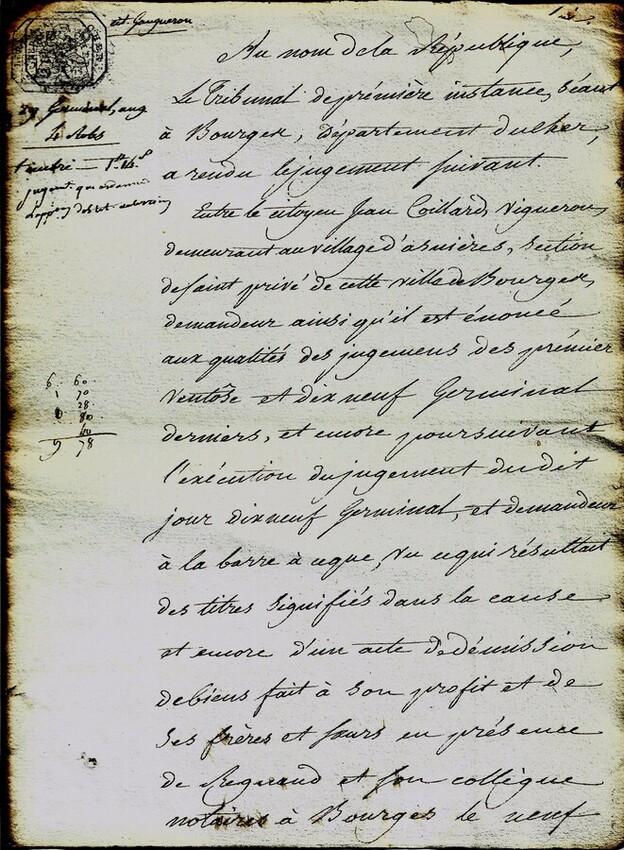 Au nom de la République,
Le Tribunal de première instance, Séant
à Bourges, département du Cher,
a rendu le jugement suivant.
Entre le citoyen Jean Coillard, Vigneron,
demeurant au village d'asnières, Section
de saint privé de cette ville de Bourges,
demandeur ainsi qu'il est énoncé
aux qualités des jugemens des prémier
Ventôse et dix neuf Germinal
derniers, et encore poursuivant
l'exécution du jugement du dit
jour dix neuf Germinal, et demandeur
à la barre à ce que, Vu ce qui résultait
des titres signifiés dans la cause
et encore d'un acte de démission
de biens fait à son profit et de
Ses frères et sœurs en présence
de Regnaud et son collègue
notaires à Bourges le neuf
Germinal, an
jugent qui ordonne
6 60
1 70
28
80
40
9 78